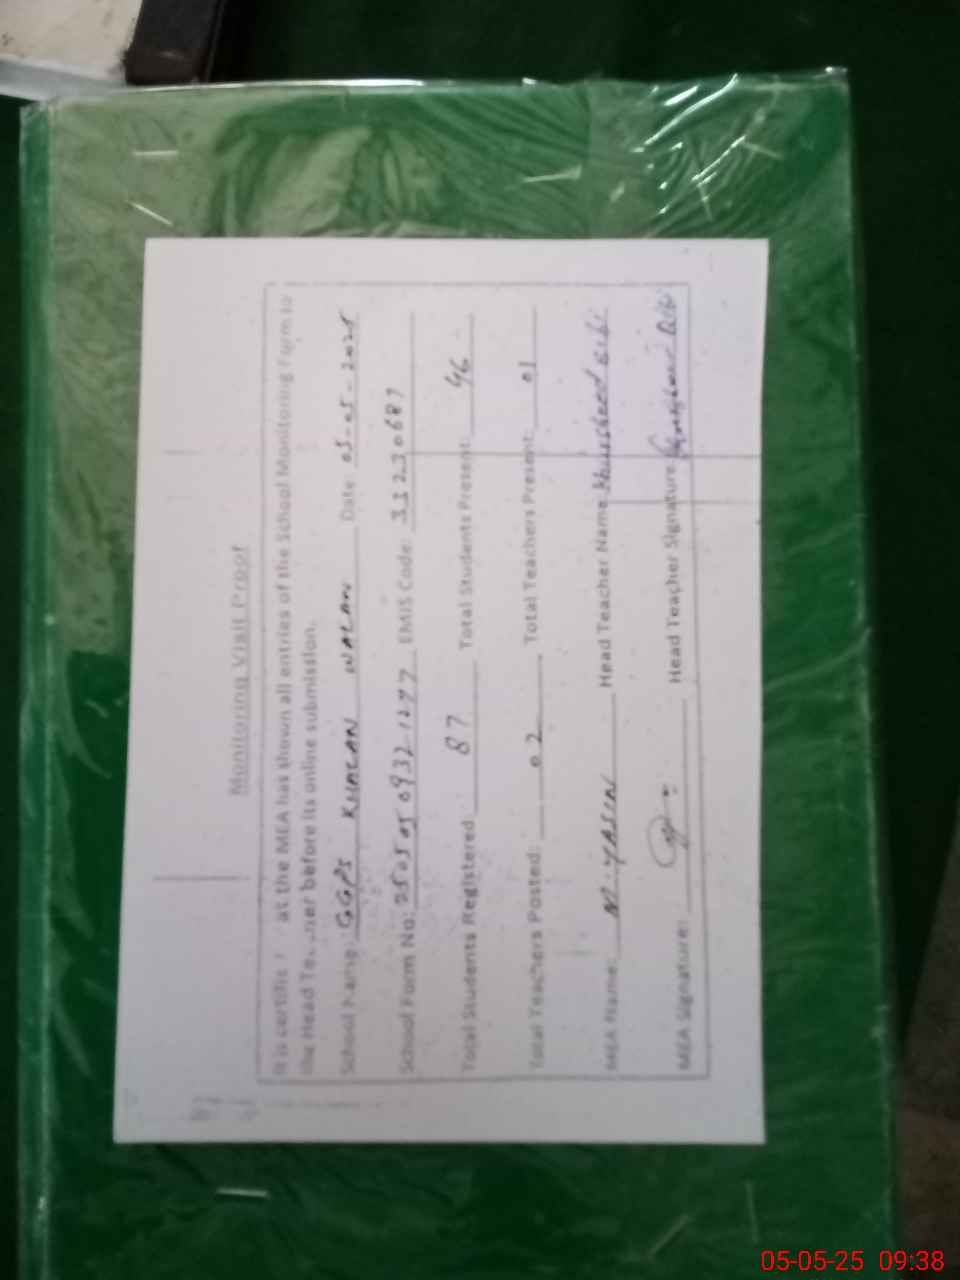 Monitoring Visit Proof
It is certifie at the MEA has shown all entries of the School Monitoring Form to
the Head Te...ner before its online submission.
School Name: GGPS KHALAN WALAN Date: 05-05-2025
School Form No: 25050509321277 EMIS Code: 33230687
Total Students Registered 87 Total Students Present: 46
Total Teachers Posted: 02 Total Teachers Present: 01
MEA Name: M. YASIN Head Teacher Name Bibi
MEA Signature: Head Teacher Signature Bibi
05-05-25 09:38